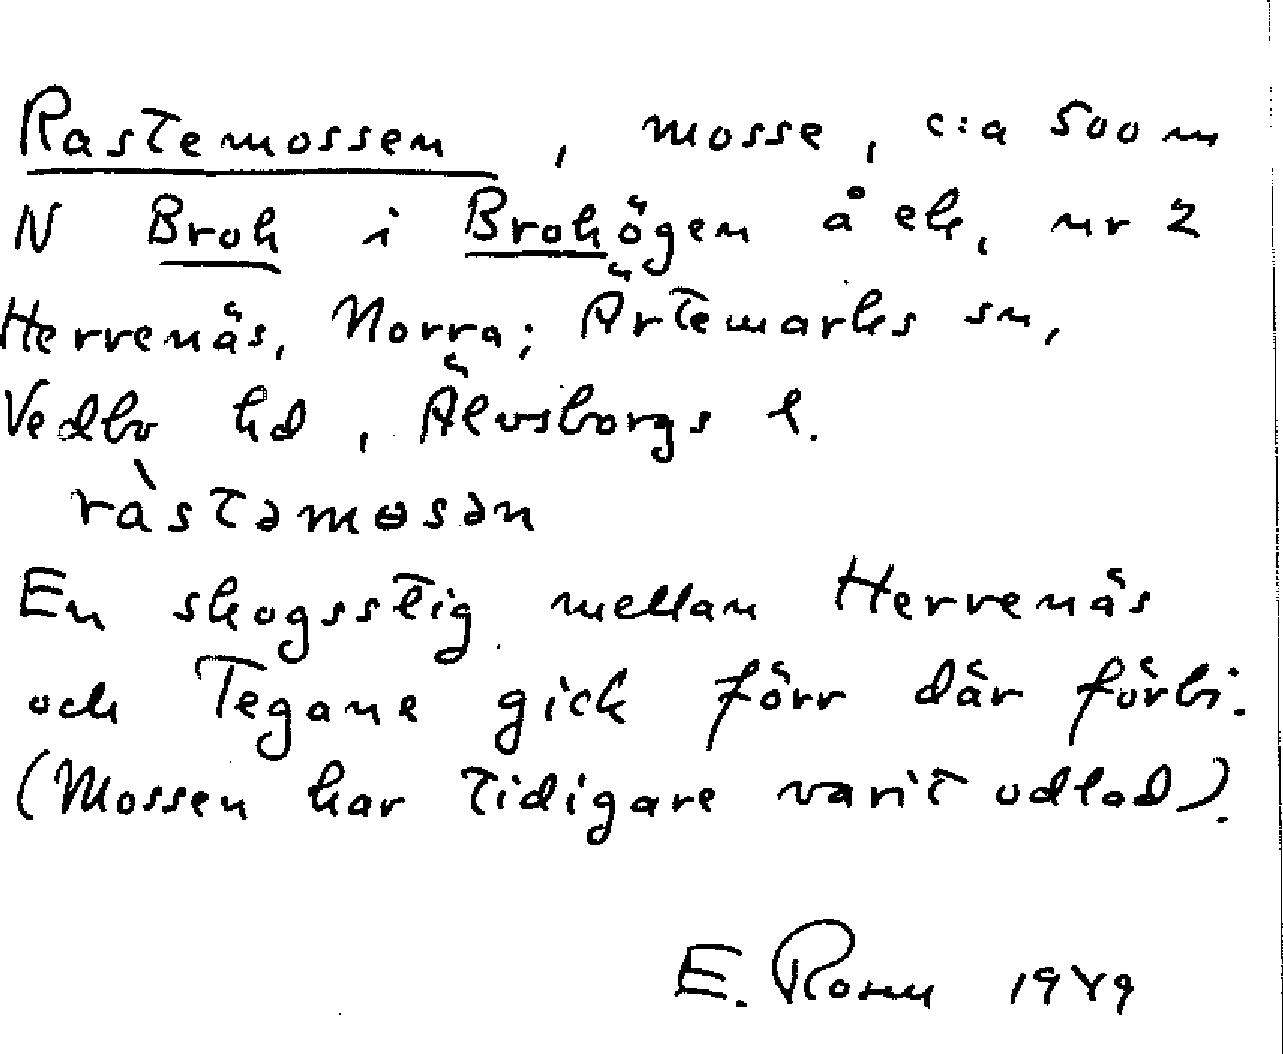 Rastemossen, mosse, c:a 500 m
N Broh i Brohögen å ek. nr 2
Herrenäs, Norra; Ärtemarks sn,
Vedbo hd, Älvsborgs l.
ràstəmɵsən
En skogsstig mellan Herrenäs
och Tegane gick förr där förbi.
(Mossen har tidigare varit odlad).
E. 1949